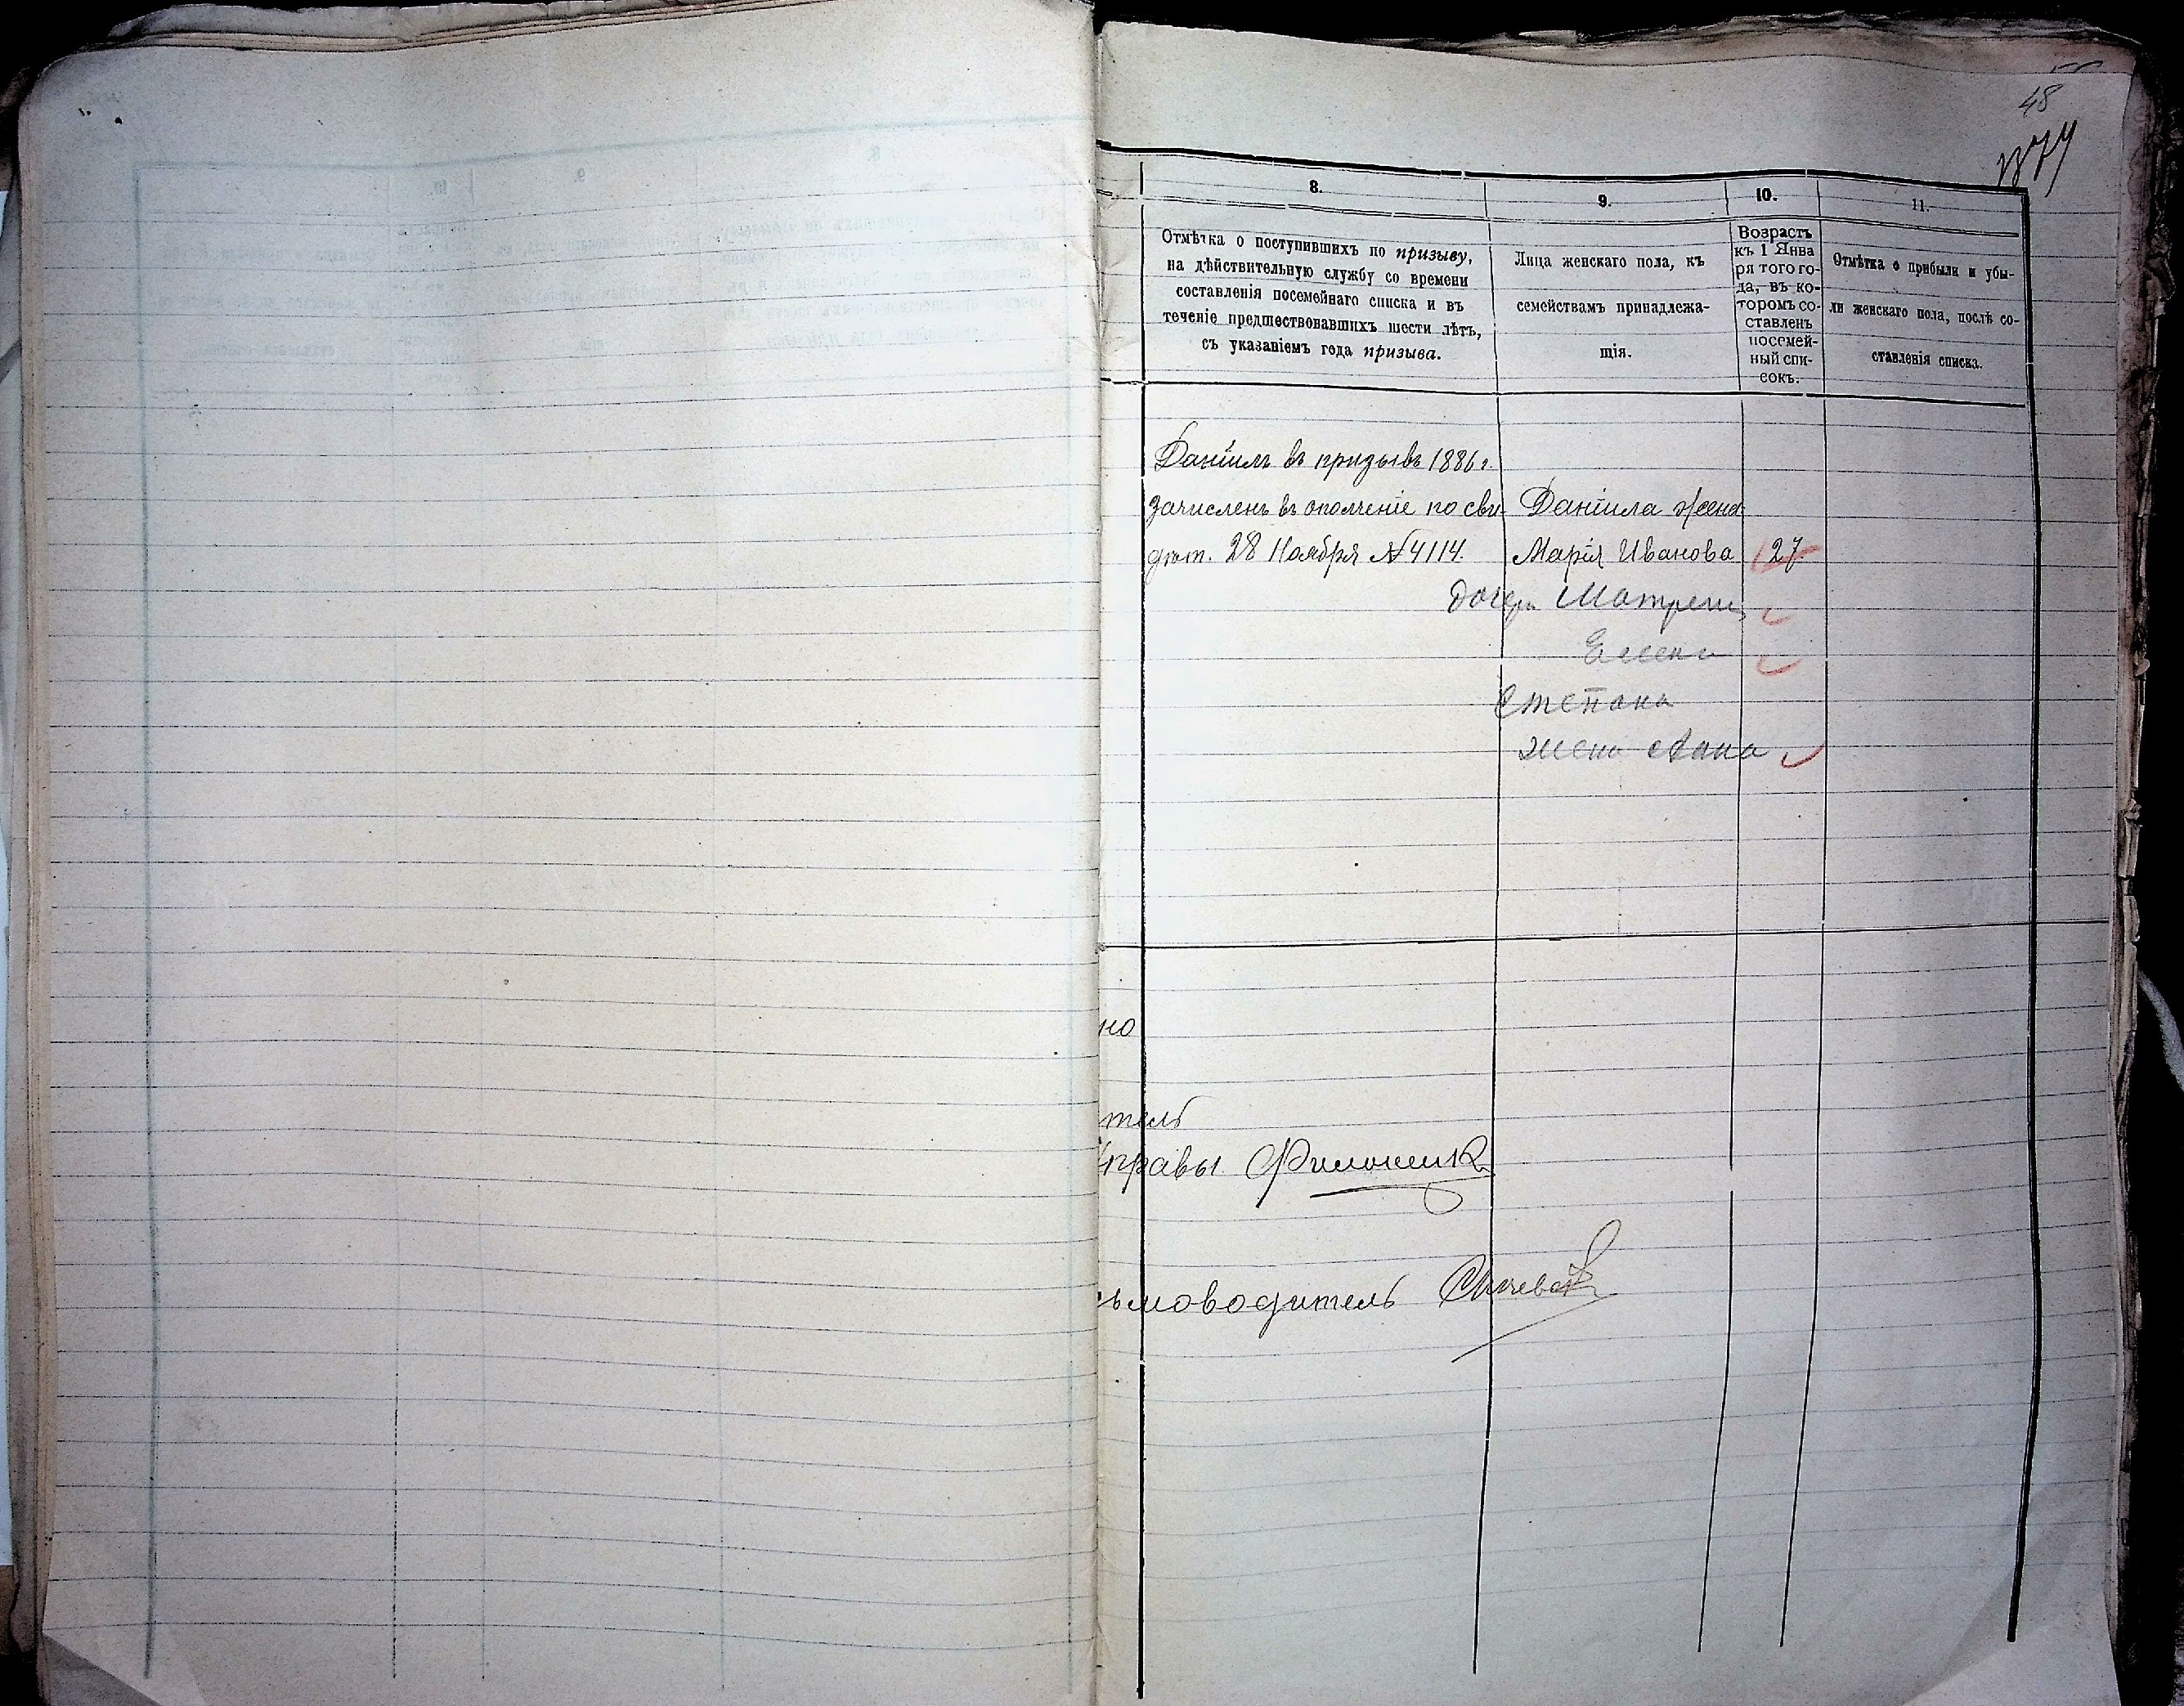 48
8.
9.
10.
11.
Отмѣтка о поступившихъ по призыву,
на дѣйствительную службу со времени
составленія посемейнаго списка и въ
теченіе предшествовавшихъ шести лѣтъ,
съ указаніемъ года призыва.
Лица женскаго пола, къ
семействамъ принадлежа-
щія.
Возрастъ
къ 1 Янва
ря того го-
да, въ ко-
торомъ со-
ставленъ
посемей-
ный спи-
сокъ.
Отмѣтка о прибыли и убы-
ли женскаго пола, послѣ со-
ставленія списка.
Даніилъ въ призывъ 1886 г.
зачисленъ въ ополченіе по сви-
дѣт. 28 Ноября № 4114.
Даніила жена
Марія Иванова 27.
дочери Матрена
Елена
Степана
жена Анна
но
тель
Управы
ьмоводитель